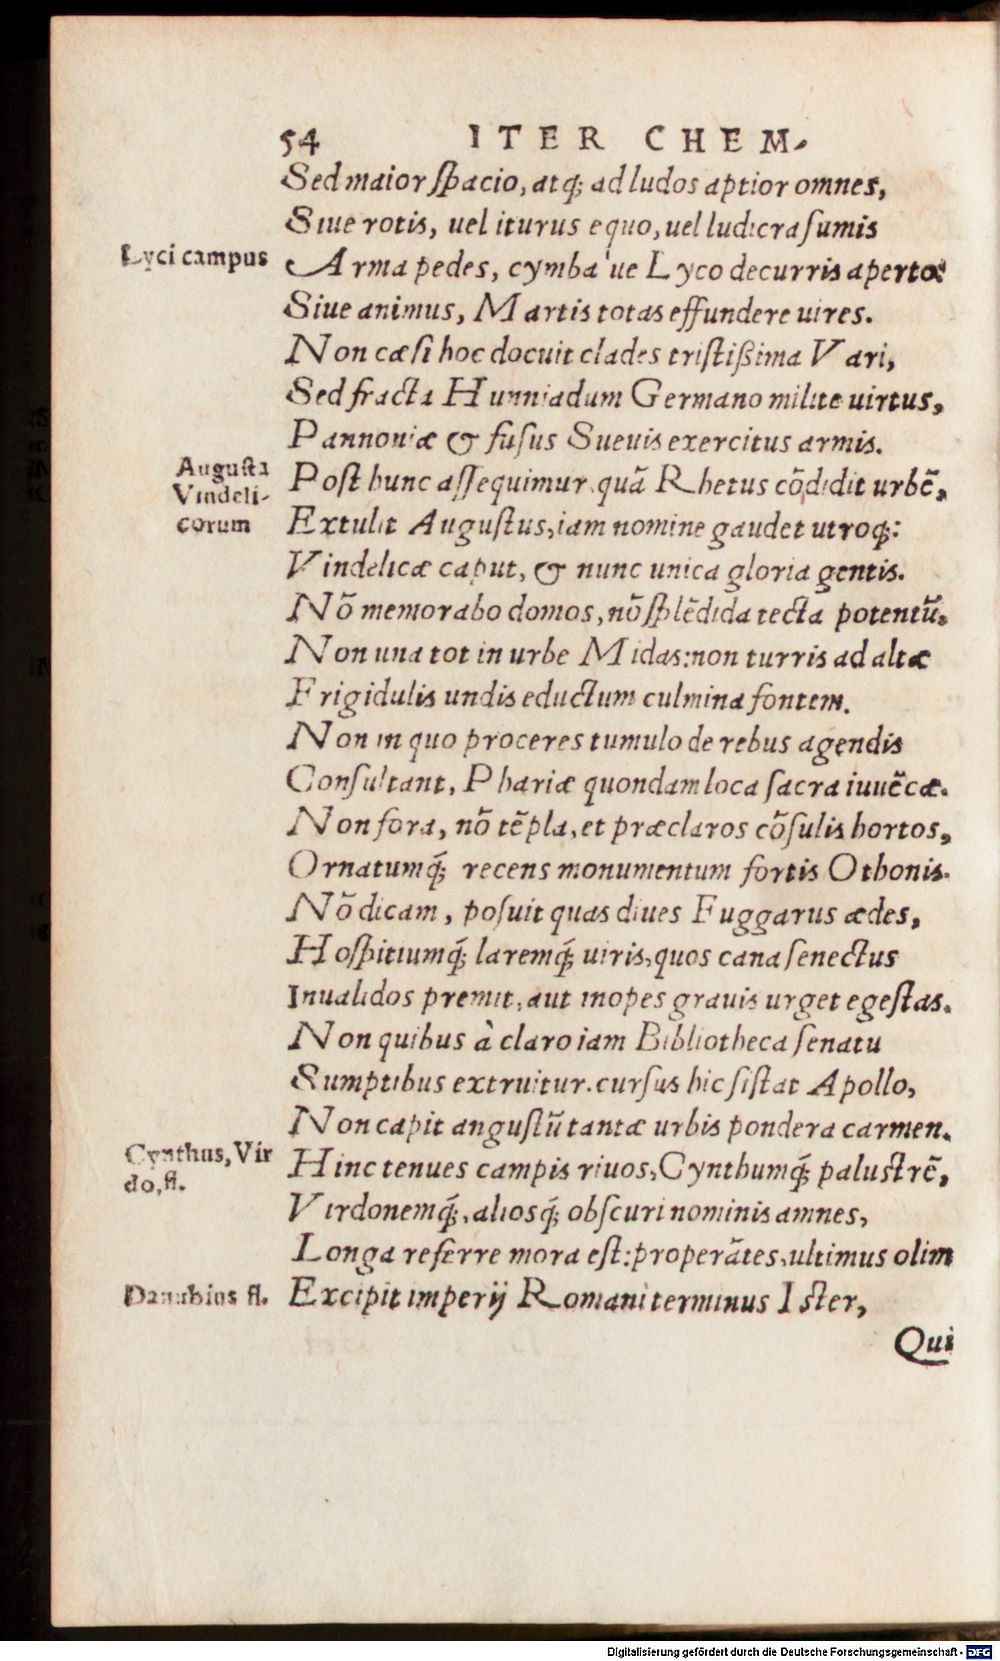 54 ITER CHEM-
Sed maior spacio, atq; ad ludos aptior omnes,
Siue rotis, uel iturus equo, uel ludicra sumis
Lyci campus
Arma pedes, cymba'ue Lyco decurris aperto:
Siue animus, Martis totas effundere uires.
Non cæsi hoc docuit clades tristißima Vari,
Sed fracta Hunniadum Germano milite uirtus,
Pannoniæ & fusus Sueuis exercitus armis.
Augusta
Vindeli-
corum
Post hunc assequimur, quã Rhetus cõdidit urbẽ,
Extulit Augustus, iam nomine gaudet utroq;:
Vindelicæ caput, & nunc unica gloria gentis.
Nõ memorabo domos, nõ splẽdida tecta potentũ,
Non una tot in urbe Midas: non turris ad altæ
Frigidulis undis eductum culmina fontem.
Non in quo proceres tumulo de rebus agendis
Consultant, Phariæ quondam loca sacra iuuẽcæ.
Non fora, nõ tẽpla, et præclaros cõsulis hortos,
Ornatumq́; recens monumentum fortis Othonis.
Nõ dicam, posuit quas diues Fuggarus ædes,
Hospitiumq́; laremq́; uiris, quos cana senectus
Inualidos premit, aut inopes grauis urget egestas.
Non quibus à claro iam Bibliotheca senatu
Sumptibus extruitur. cursus hic sistat Apollo,
Non capit angustũ tantæ urbis pondera carmen.
Cynthus, Vir
do, fl.
Hinc tenues campis riuos, Cynthumq́; palustrẽ,
Virdonemq́;, aliosq́; obscuri nominis amnes,
Longa referre mora est: properãtes, ultimus olim
Danubius fl.
Excipit imperij Romani terminus Ister,
Qui
Digitalisierung gefördert durch die Deutsche Forschungsgemeinschaft - DFG